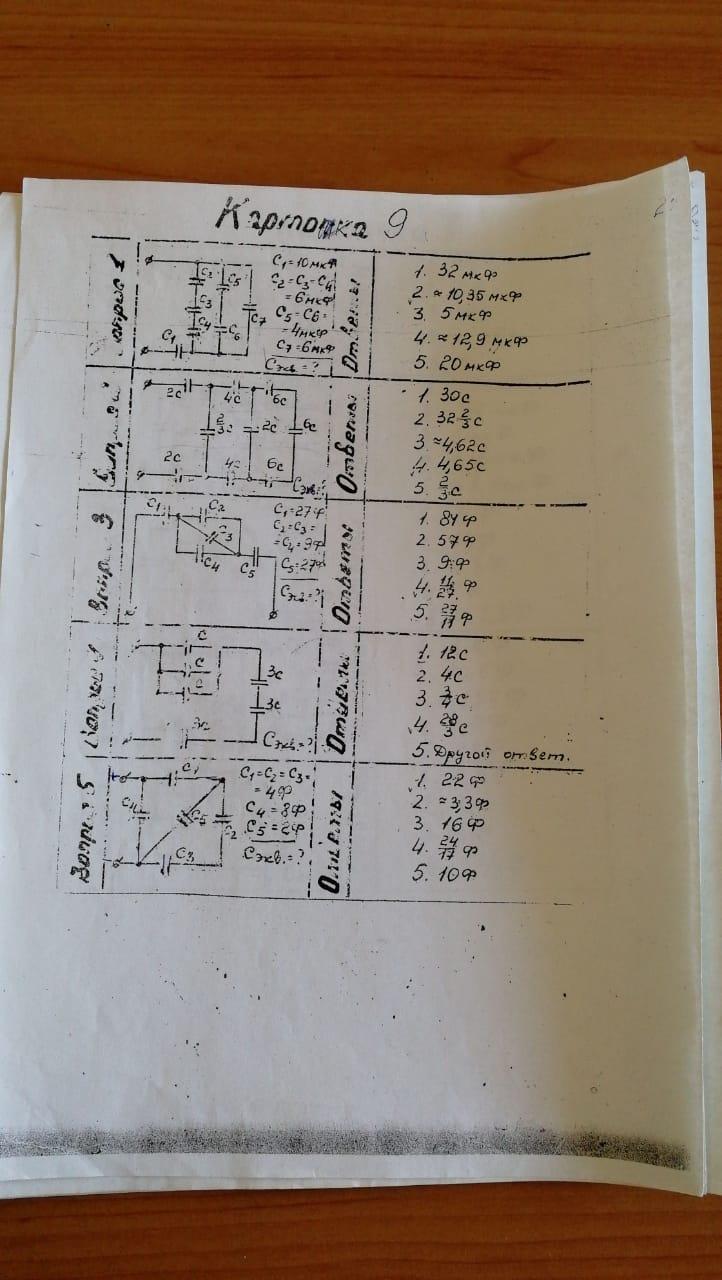 Карточка 9
Вопрос 1
C2 C5
C3
C4 C6 C7
C1
C1=10мкФ
C2=C3=C4
=6мкФ
C5=C6=
=4мкФ
C7=6мкФ
Cэкв.=?
Ответы
1. 32 мкФ
2. ≈10,35 мкФ
3. 5 мкФ
4. ≈12,9 мкФ
5. 20 мкФ
2C 4C 6C
2/3C 2C 6C
2C 4C 6C
Cэкв.=?
Ответы
1. 30C
2. 32 2/3 C
3. ≈4,62C
4. 4,65C
5. 2/3 C
Вопрос 3
C1 C2
C3
C4 C5
C1=27Ф
C2=C3=
=C4=9Ф
C5=27Ф
Cэкв.=?
Ответы
1. 81Ф
2. 57Ф
3. 9Ф
4. 11/27 Ф
5. 27/11 Ф
Вопрос 4
C
C
C
3C
3C
3C
Cэкв.=?
Ответы
1. 12C
2. 4C
3. 3/4 C
4. 28/3 C
5. Другой ответ.
Вопрос 5
C1
C4 C5 C2
C3
C1=C2=C3=
=4Ф
C4=8Ф
C5=2Ф
Cэкв.=?
Ответы
1. 22Ф
2. ≈3,3Ф
3. 16Ф
4. 24/17 Ф
5. 10Ф